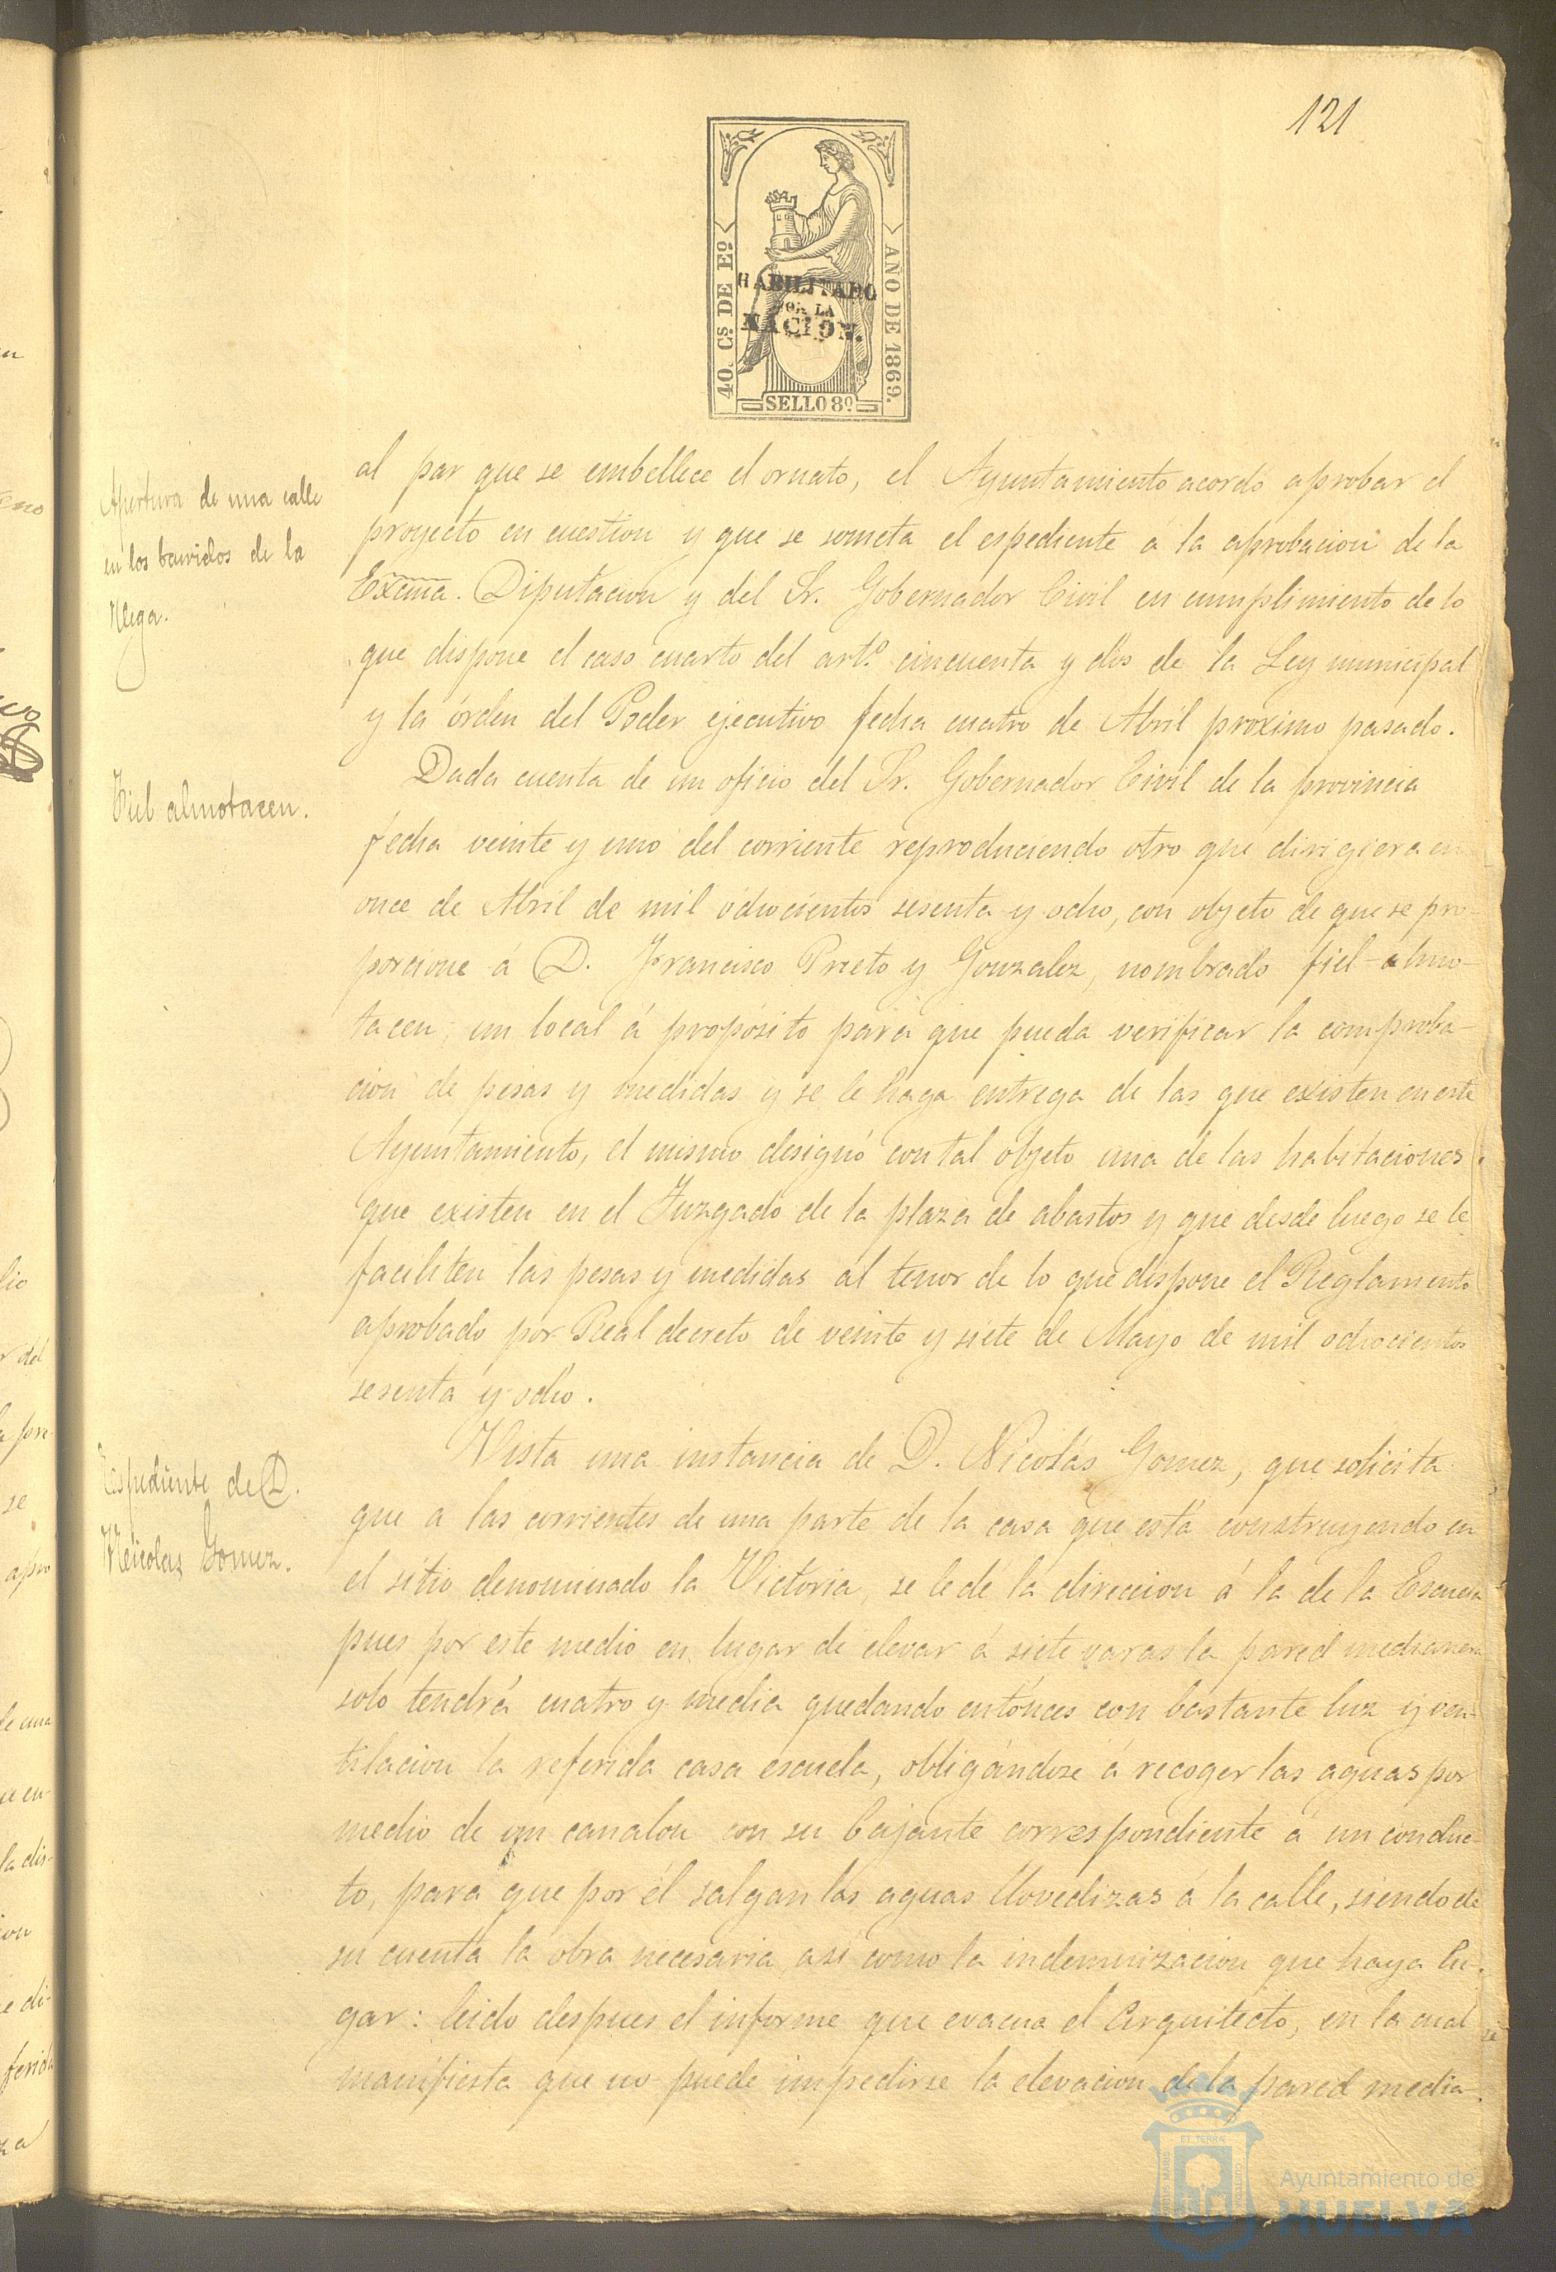 121
40. Cs. DE Eo.
AÑO DE 1869.
HABILITADO
POR LA
NACION.
SELLO 8º
Apertura de una calle
en los barridos de la
Vega.
al par que se embellece el ornato, el Ayuntamiento acordó aprobar el
proyecto en cuestion y que se someta el espediente a la aprobacion de la
Excma. Diputacion y del Sr. Gobernador Civil en cumplimiento de lo
que dispone el caso cuarto del artº. cincuenta y dos de la Ley municipal
y la órden del Poder ejecutivo fecha cuatro de Abril proximo pasado.
Fiel almotacen.
Dada cuenta de un oficio del Sr. Gobernador Civil de la provincia
fecha veinte y uno del corriente reproduciendo otro que dirigiera en
once de Abril de mil ochocientos sesenta y ocho, con objeto de que se pro-
porcione á D. Francisco Prieto y Gonzalez, nombrado fiel-almo-
tacen, un local á propósito para que pueda verificar la comproba-
cion de pesas y medidas y se le haga entrega de las que existen en este
Ayuntamiento, el mismo designó con tal objeto una de las habitaciones
que existen en el Juzgado de la plaza de abastos y que desde luego se le
faciliten las pesas y medidas al tenor de lo que dispone el Reglamento
aprobado por Real decreto de veinte y siete de Mayo de mil ochocientos
sesenta y ocho.
Espediente de D.
Nicolas Gomez.
Vista una instancia de D. Nicolás Gomez, que solicita
que a las corrientes de una parte de la casa que está construyendo en
el sitio denominado la Victoria, se le dé la direccion á la de la Escuela
pues por este medio en lugar de elevar á siete varas la pared medianera
solo tendrá cuatro y media quedando entónces con bastante luz y ven-
tilacion la referida casa escuela, obligándose á recoger las aguas por
medio de un canalon con su bajante correspondiente á un conduc-
to, para que por él salgan las aguas llovedizas á la calle, siendo de
su cuenta la obra necesaria asi como la indemnizacion que haya lu-
gar: leido despues el informe que evacua el Arquitecto, en la cual
manifiesta que no puede impedirse la elevacion de la pared media-
Ayuntamiento de
HUELVA